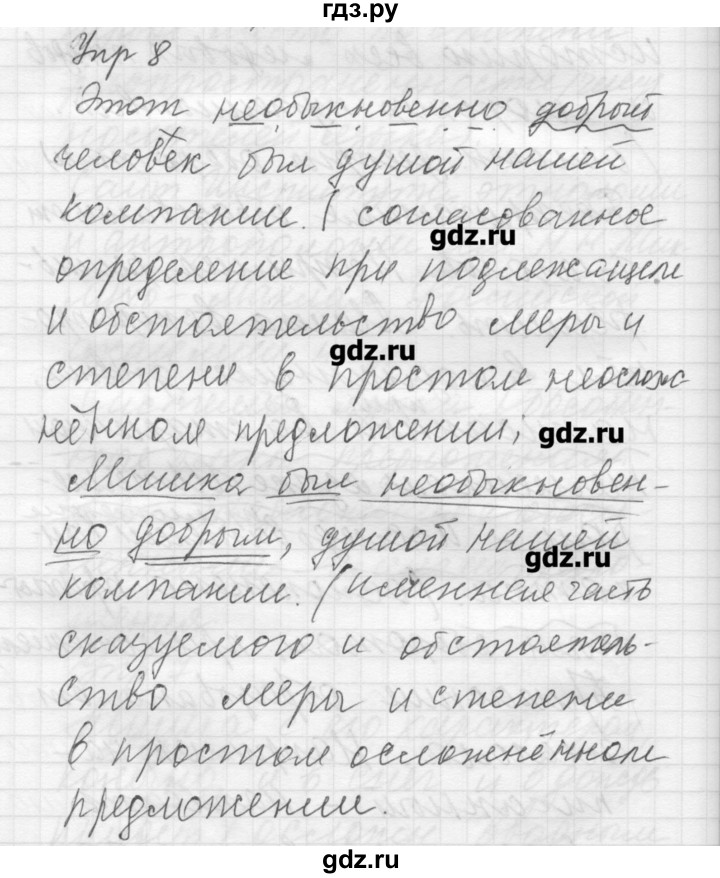 гдз.ру
Упр 8
Этот необыкновенно добрый
человек был душой нашей
компании. (согласованное
gdz.ru
определение при подлежащем
и обстоятельство меры и
gdz.ru
степени в простом неослож-
нённом предложении;
gdz.ru
Мишка был необыкновен-
но добрым, душой нашей
gdz.ru
компании. (именная часть
сказуемого и обстоятель-
ство меры и степени
в простом осложнённом
предложении.
gdz.ru